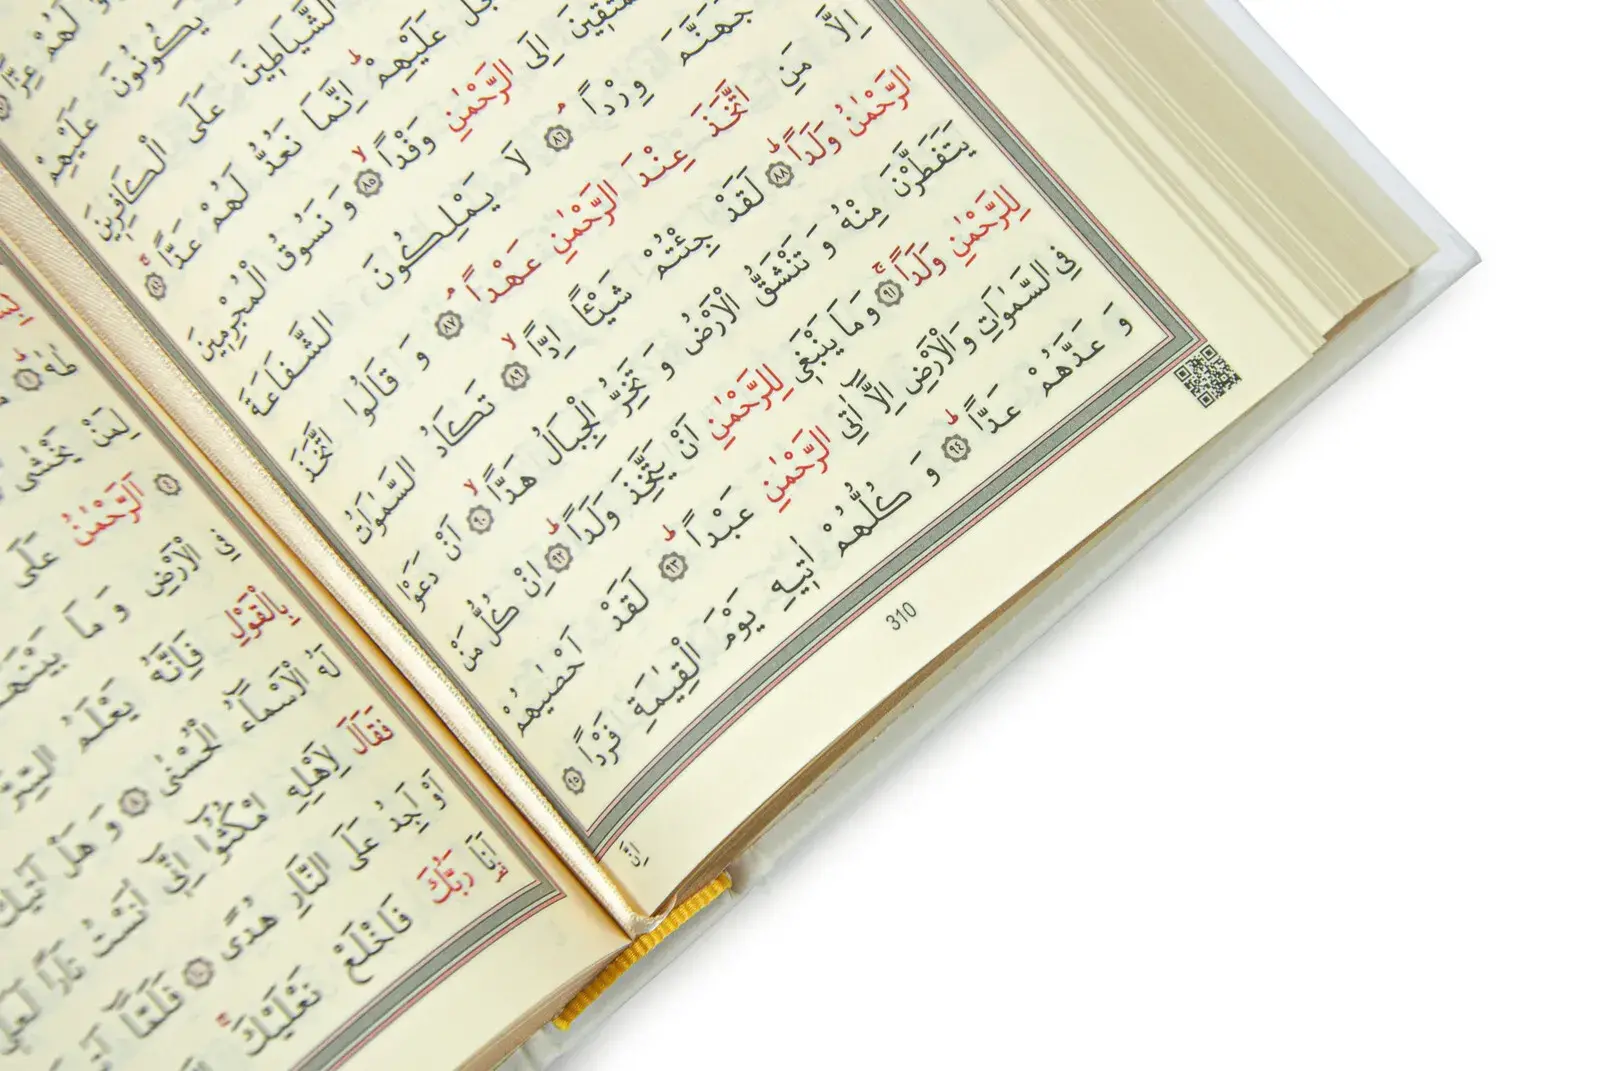 لَهُمْ عِزًّا
يَكُونُونَ عَلَيْهِمْ
الشَّيَاطِينَ عَلَى الْكَافِرِينَ
عَلَيْهِمْ اِنَّمَا نَعُدُّ لَهُمْ عَدًّا ٨٤
اِلَى الرَّحْمٰنِ وَفْدًا ٨٥ وَنَسُوقُ الْمُجْرِمِينَ
جَهَنَّمَ وِرْدًا ٨٦ لَا يَمْلِكُونَ الشَّفَاعَةَ
اِلَّا مَنِ اتَّخَذَ عِنْدَ الرَّحْمٰنِ عَهْدًا ٨٧ وَقَالُوا اتَّخَذَ
الرَّحْمٰنُ وَلَدًا ٨٨ لَقَدْ جِئْتُمْ شَيْـًٔا اِدًّا ٨٩ تَكَادُ السَّمٰوَاتُ
يَتَفَطَّرْنَ مِنْهُ وَتَنْشَقُّ الْاَرْضُ وَتَخِرُّ الْجِبَالُ هَدًّا ٩٠ اَنْ دَعَوْا
لِلرَّحْمٰنِ وَلَدًا ٩١ وَمَا يَنْبَغِي لِلرَّحْمٰنِ اَنْ يَتَّخِذَ وَلَدًا ٩٢ اِنْ كُلُّ مَنْ
فِي السَّمٰوَاتِ وَالْاَرْضِ اِلَّا اٰتِي الرَّحْمٰنِ عَبْدًا ٩٣ لَقَدْ اَحْصٰيهُمْ
وَعَدَّهُمْ عَدًّا ٩٤ وَكُلُّهُمْ اٰتِيهِ يَوْمَ الْقِيٰمَةِ فَرْدًا ٩٥
310
لِمَنْ يَخْشٰى
٤ اَلرَّحْمٰنُ عَلَى
فِي الْاَرْضِ وَمَا بَيْنَهُمَا
بِالْقَوْلِ فَاِنَّهُ يَعْلَمُ السِّرَّ
لَهُ الْاَسْمَاءُ الْحُسْنٰى ٨ وَهَلْ اَتٰيكَ
فَقَالَ لِاَهْلِهِ امْكُثُوا اِنِّي اٰنَسْتُ نَارًا لَعَلِّي
اَوْ اَجِدُ عَلَى النَّارِ هُدًى ١٠ فَلَمَّا
اَنَا رَبُّكَ فَاخْلَعْ نَعْلَيْكَ